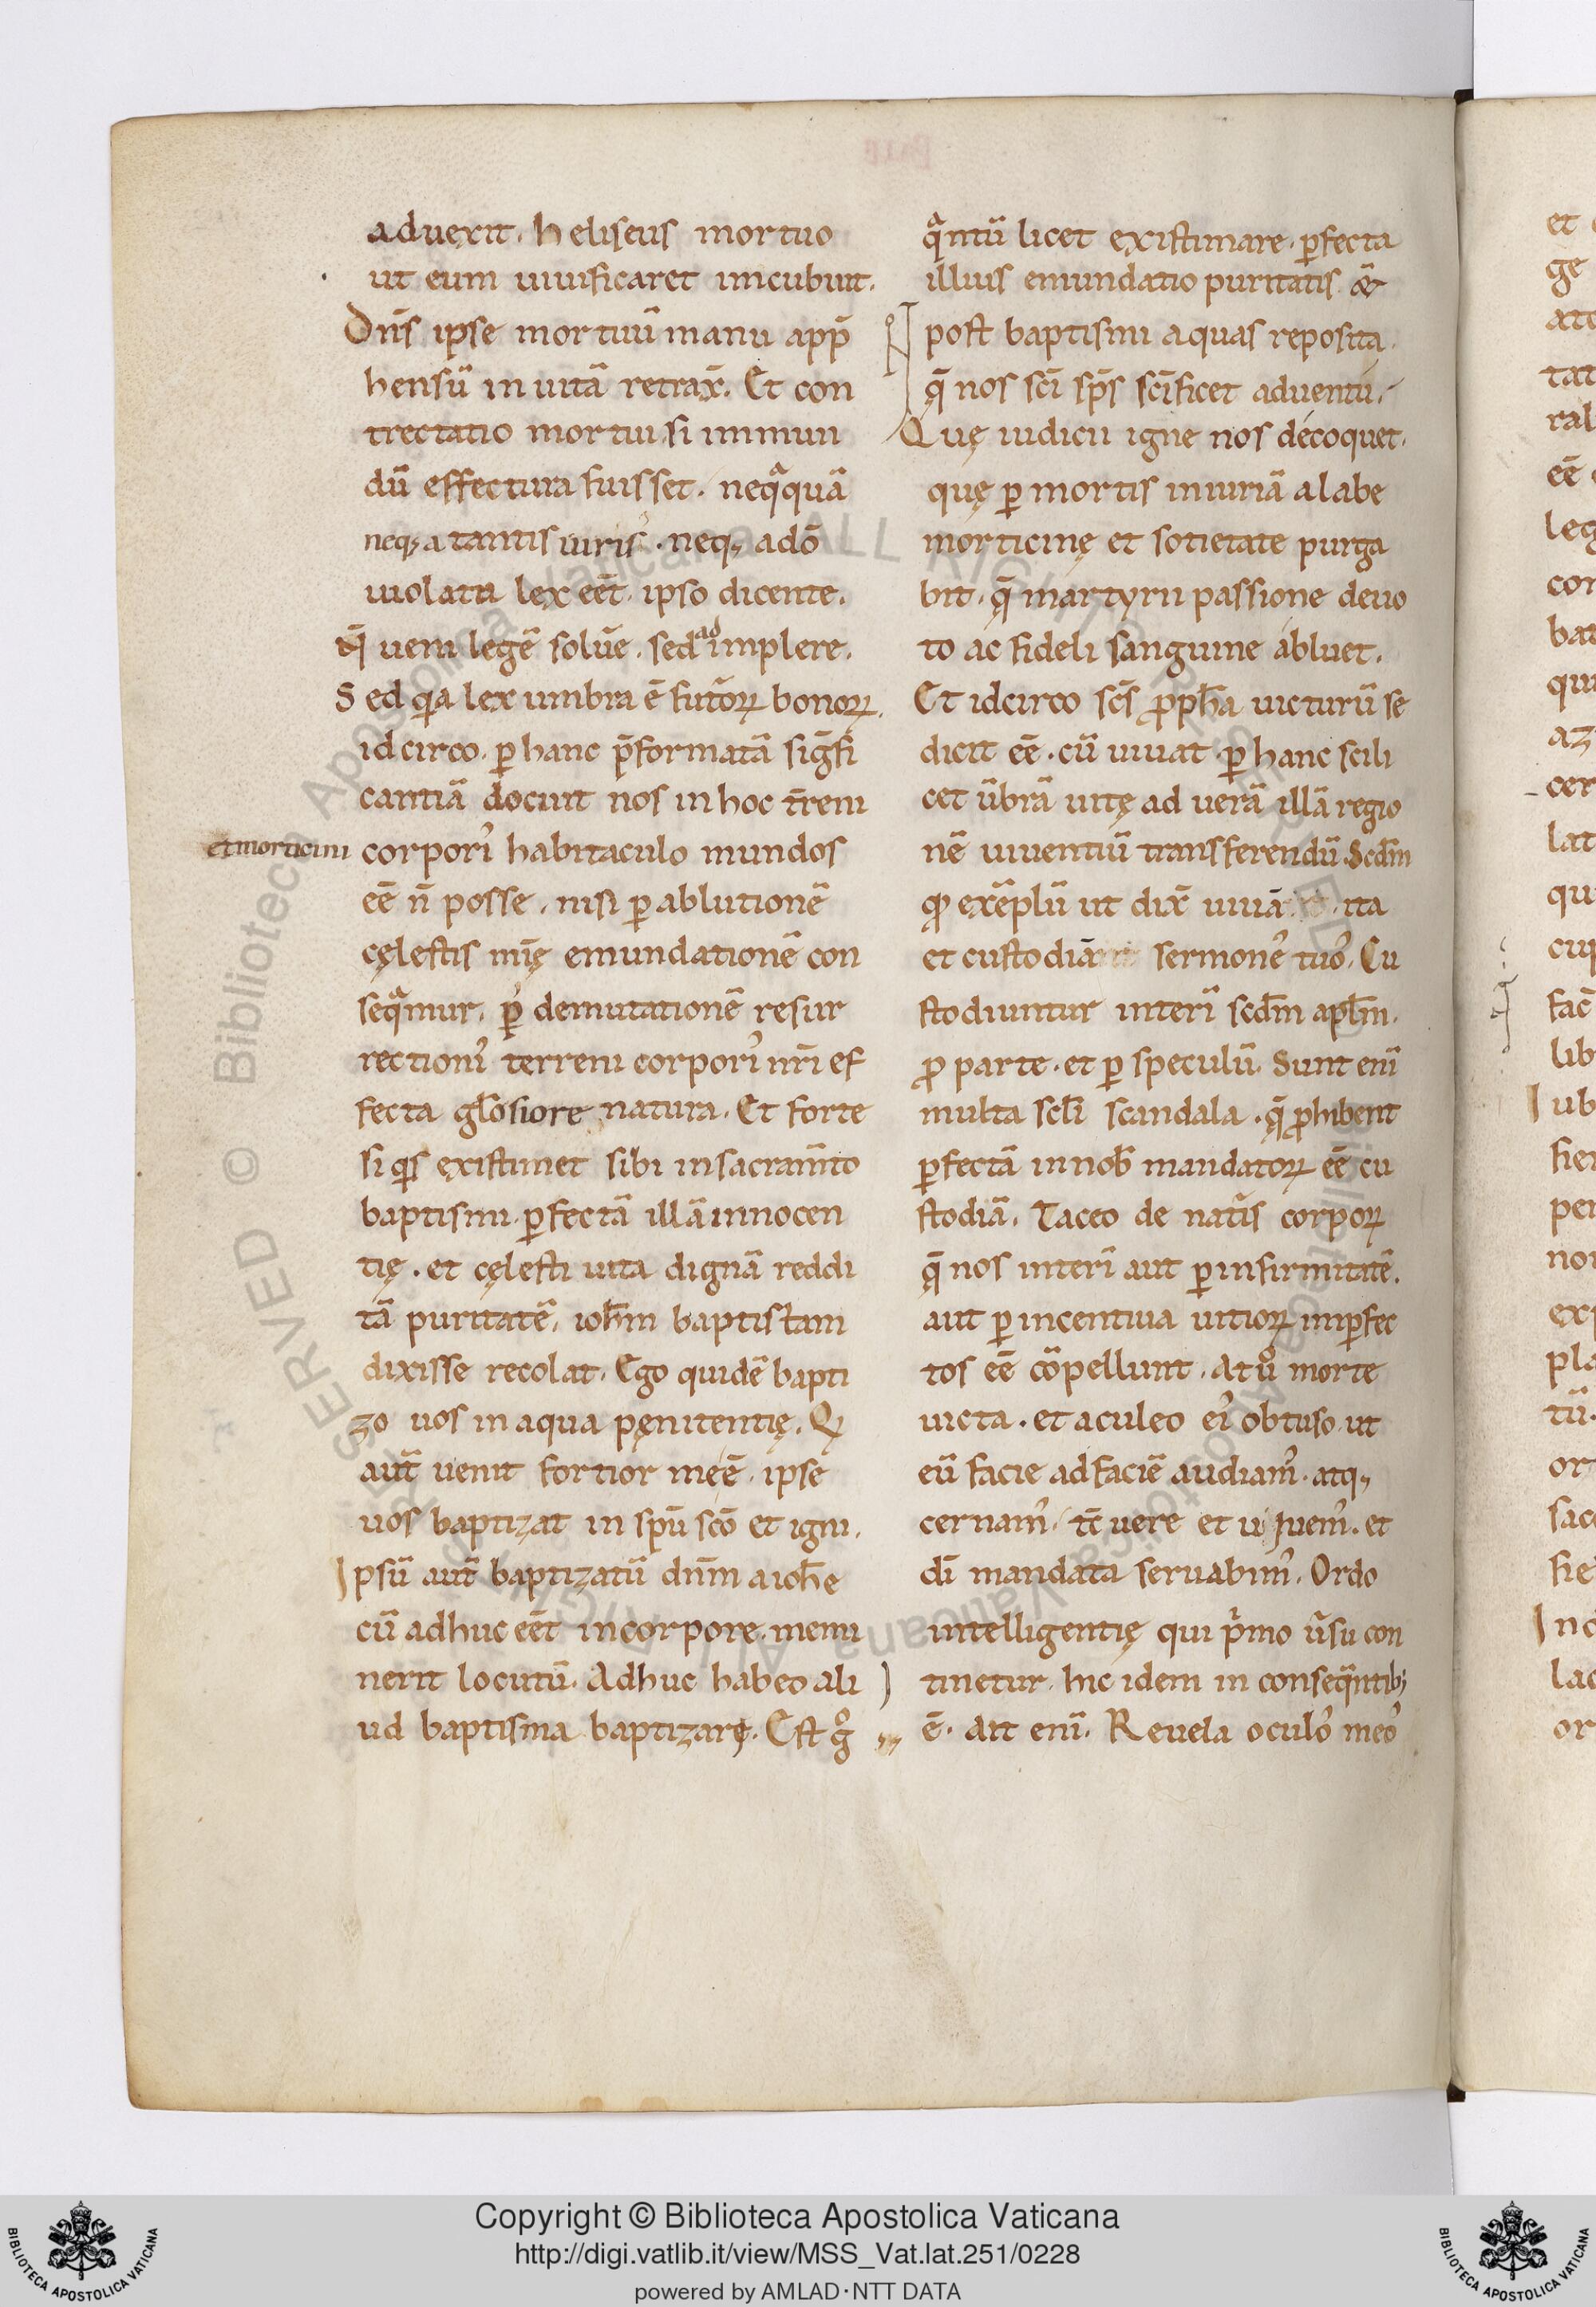 aduexit. heliseus mortuo
ut eum uiuificaret incubuit.
Dn̄s ipse mortuū manu app̄
hensū in uitā retrax̄. Et con
trectatio mortui si immun
dū effectura fuisset. neqᵃquā
neq; a tantis uiris. neq; a dō
uiolata lex eēt. ipso dicente.
ueni legē soluē. sed ad implere.
Sed qia lex umbra ē futōꝝ bonoꝝ.
idcirco. ꝑ hanc p̄formatā sig̅fi
cantiā docuit nos in hoc t̄reni
et morticini
corporiˀ habitaculo mundos
eē n̄ posse. nisi ꝑ ablutionē
cęlestis mīę emundationē con
seqᵃmur. ꝑ demutationē resur
rectioniˀ terreni corporiˀ nr̄i ef
fecta gl̄osiore natura. Et forte
si qis existimet sibi in sacram̄to
baptismi. ꝑfectā illā innocen
tię. et cęlesti uita dignā reddi
tā puritatē. ioh̄m baptistam
dixisse recolat. Ego quidē bapti
zo uos in aqua pęnitentię. Qi
aut̄ uenit fortior me ē. ipse
uos baptizat in sp̄u scō et igni.
Ipsū aut̄ baptizatū dn̄m a ioh̄e
cū adhuc eēt in corpore. memi
nerit locutū. Adhuc habeo ali
ud baptisma baptizari. Est gͦ
qᵃntū licet existimare. ꝑfecta
illius emundatio puritatis &
post baptismi aquas reposita.
q̄ nos sc̄i sp̄s sc̄ificet aduentu.
Quę iudicii igne nos decoquet.
quę ꝑ mortis iniuriā a labe
morticinę et sotietate purga
bit. q̄ martyrii passione deuo
to ac fideli sanguine abluet.
Et idcirco sc̄s ꝓph̄a uicturū se
dicit eē. cū uiuat. ꝑ hanc scili
cet ūbrā uitę ad uerā illā regio
nē uiuentiū transferendū. Scdm̄
qͥ exēplū ut dix̄ uiuā. ita
et custodiā sermoneˀ tuoˀ. Cu
stodiuntur interī scdm̄ apl̄m.
ꝓ parte. et ꝑ speculū. Sunt enī
multa scl̄i scandala. q̄ ꝓhibent
ꝑfectā in nob̄ mandatoꝝ eē cu
stodiā. Taceo de nat̄is corpoꝝ
q̄ nos interī aut ꝑ infirmitatē.
aut ꝑ incentiua uitioꝝ imꝑfec
tos eē cōpellunt. At uͦ morte
uicta. et aculeo eiˀ obtuso. ut
eū facie ad faciē audiamˀ. atq;
cernamˀ. tc̄ uere et uiuemˀ. et
dī mandata seruabimˀ. Ordo
intelligentię qui pͥmo ūsu con
tinetur. hic idem in conseqn̄tib;
ē. Ait enī. Reuela oculoˀ meoˀ
Copyright © Biblioteca Apostolica Vaticana
http://digi.vatlib.it/view/MSS_Vat.lat.251/0228
powered by AMLAD·NTT DATA
BIBLIOTECA APOSTOLICA VATICANA
BIBLIOTECA APOSTOLICA VATICANA